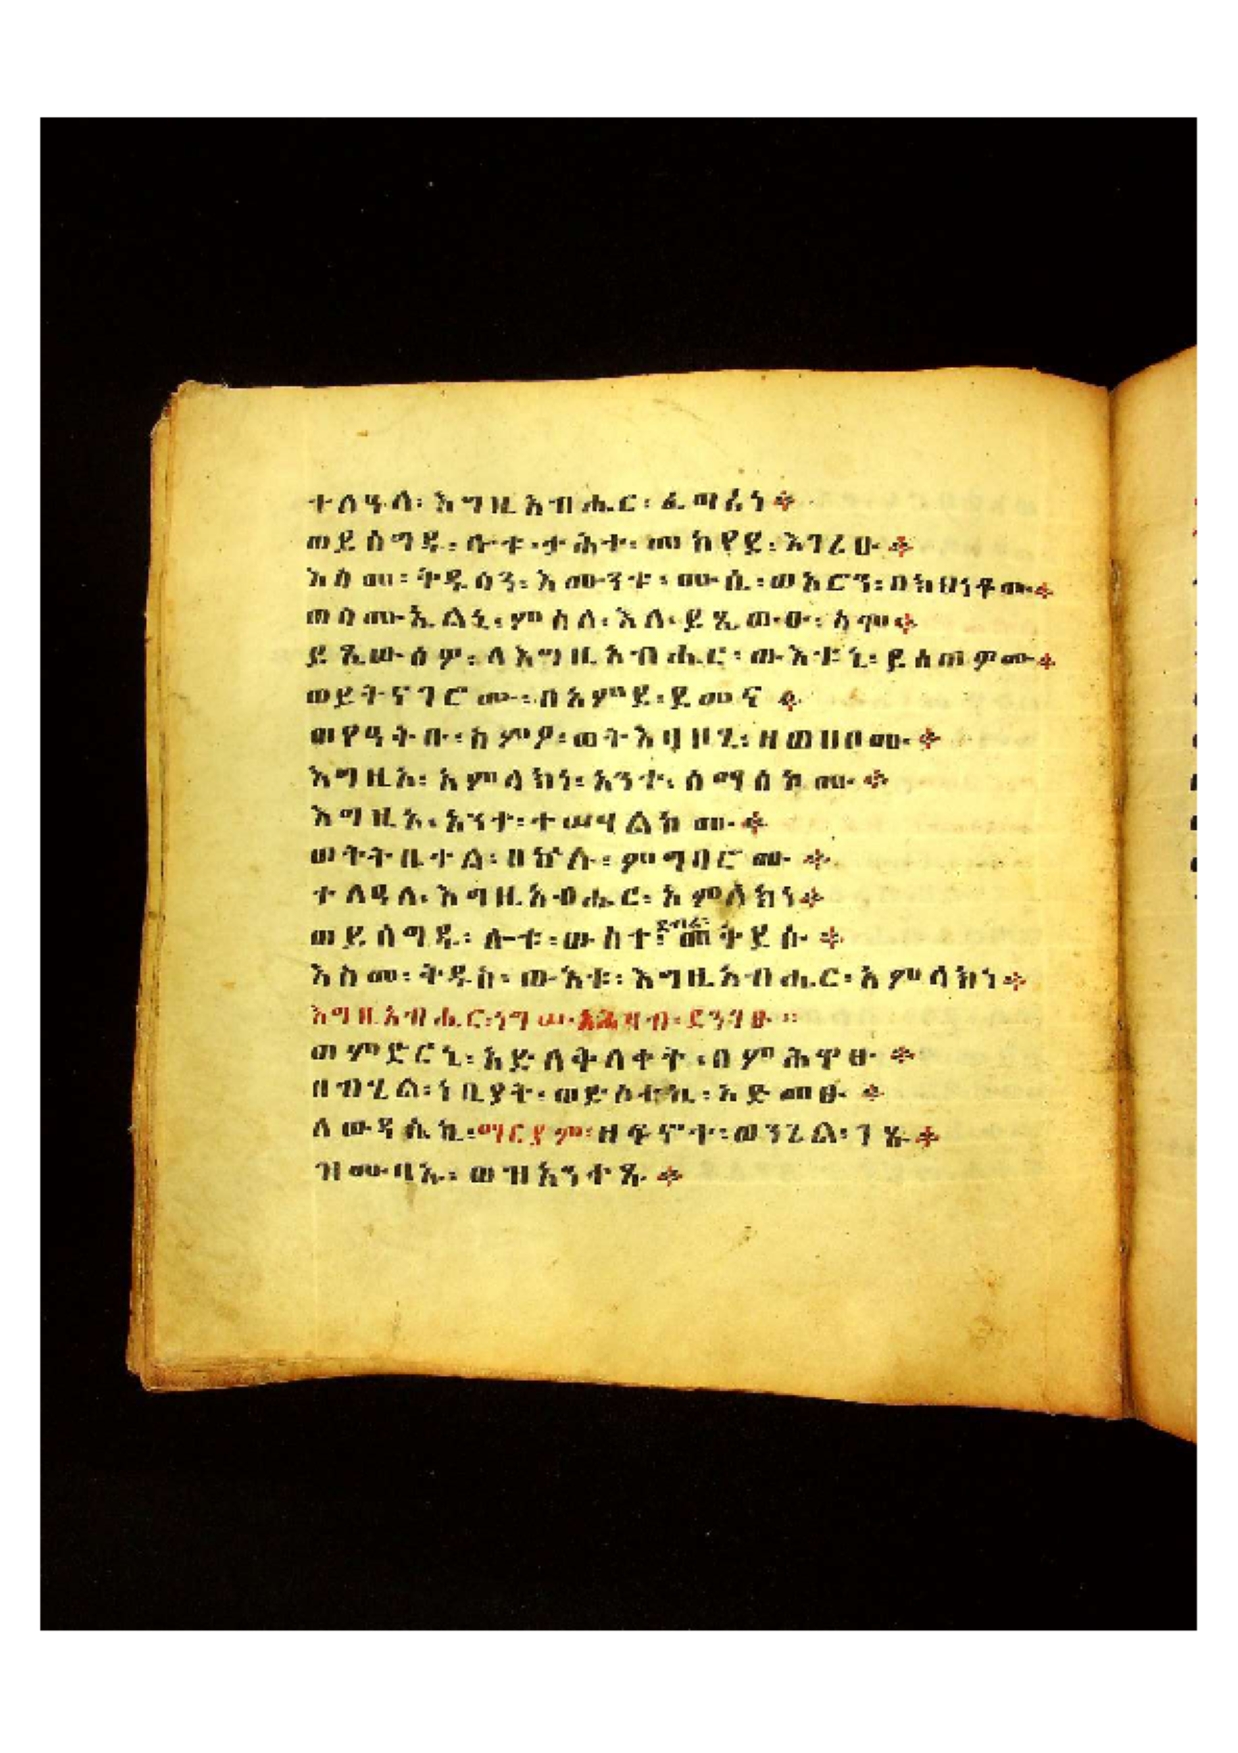 ተለዓለ፡ እግዚአብሔር፡ ፈጣሪነ።
ወይሰግዱ፡ ሎቱ፡ ታሕተ፡ መከየደ፡ እገሪሁ።
እስመ፡ ቅዱሳን፡ እሙንቱ፡ ሙሴ፡ ወአሮን፡ በክህነቶሙ።
ወሳሙኤልኒ፡ ምስለ፡ እለ፡ ይጼውዑ፡ ስሞ።
ይጼውዕዎ፡ ለእግዚአብሔር፡ ውእቱኒ፡ ይሰጠዎሙ።
ወይትናገሮሙ፡ በአምደ፡ ደመና።
ወየዓቅቡ፡ ስምዖ፡ ወትእዛዞኒ፡ ዘወሀቦሙ።
እግዚኦ፡ አምላክነ፡ አንተ፡ ሰማዕኮሙ።
እግዚኦ፡ አንተ፡ ተሣሃልኮሙ።
ወትትቤቀል፡ በኵሉ፡ ምግባሮሙ።
ተለዓለ፡ እግዚአብሔር፡ አምላክነ።
ወይሰግዱ፡ ሎቱ፡ ውስተ፡ ደብረ፡ መቅደሱ።
እስመ፡ ቅዱስ፡ ውእቱ፡ እግዚአብሔር፡ አምላክነ።
እግዚአብሔር፡ ነግሠ፡ አሕዛብ፡ ደንገፁ።
ወምድርኒ፡ አድለቅለቀት፡ በምሕዋፁ።
ዘብሂል፡ ነቢያት፡ አድመፁ።
ለውዳሴኪ፡ ማርያም፡ ዘፍኖተ፡ ወንጌል፡ ገጹ።
ዝሙባኡ፡ ወዝአንተጹ።